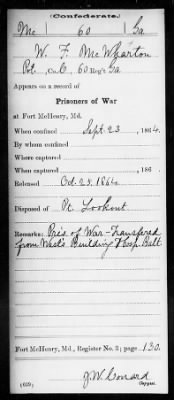 (Confederate.)
Mc 60 Ga
W. F. McWharton
Pvt., Co. C, 60 Reg't Ga
Appears on a record of
Prisoners of War
at Fort McHenry, Md.
When confined Sept. 23, 1864.
By whom confined
Where captured
When captured , 186 .
Released Oct. 25, 1864
Disposed of Pt. Lookout
Remarks: Pris. of War-Transfered
from West's Building Hosp. Balt
Fort McHenry, Md., Register No. 2; page 130.
J.W. Conrard
(639) Copyist.